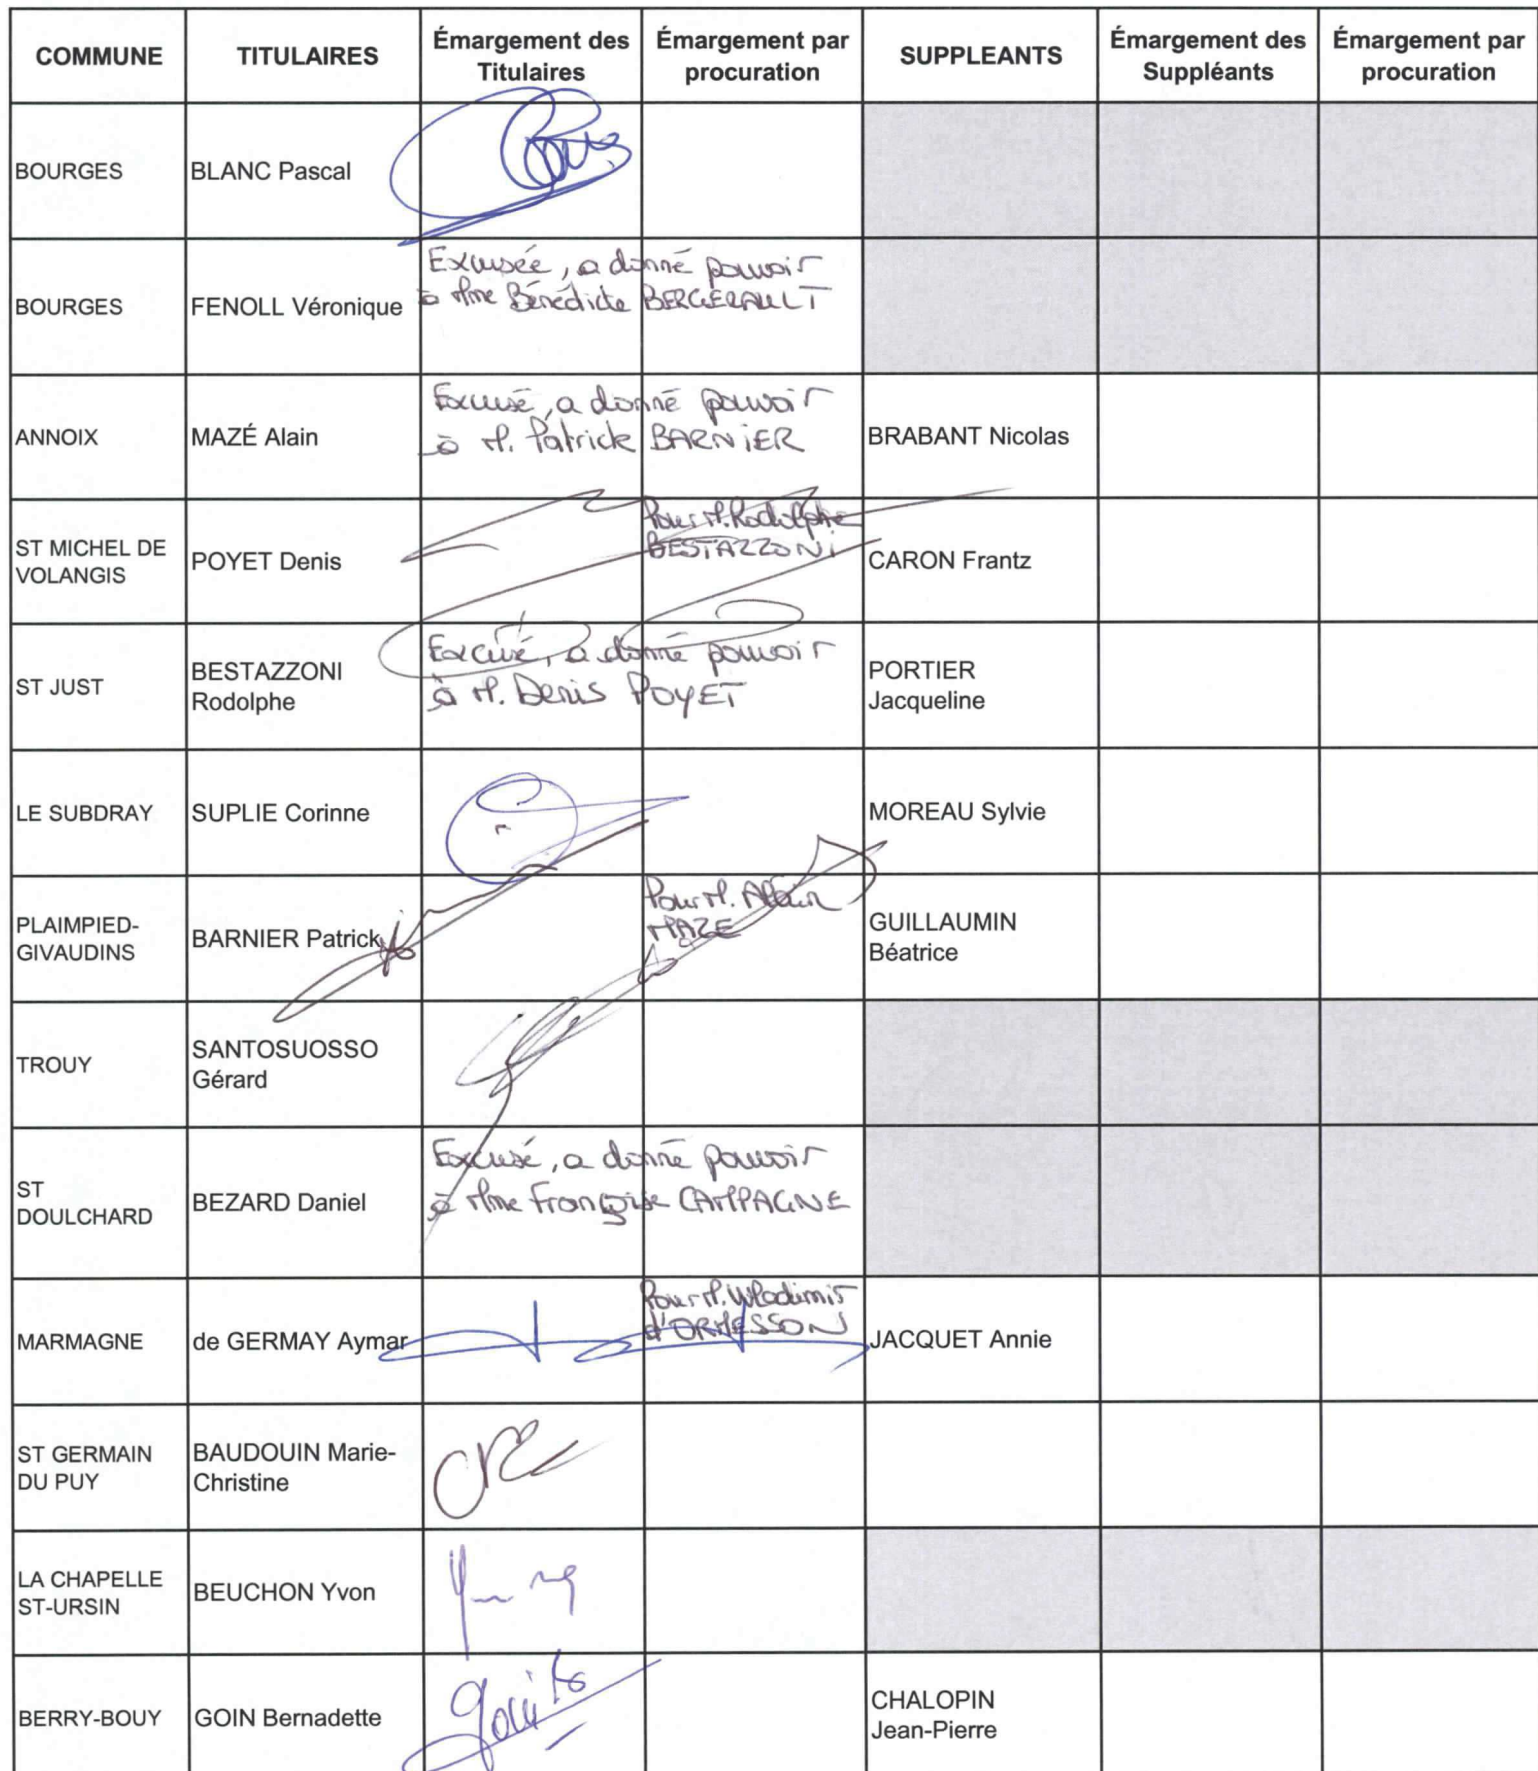 COMMUNE TITULAIRES Émargement des Titulaires Émargement par procuration SUPPLEANTS Émargement des Suppléants Émargement par procuration
BOURGES BLANC Pascal
BOURGES FENOLL Véronique Excusée, a donné pouvoir
à Mme Bénédicte BERGERAULT
ANNOIX MAZÉ Alain Excusé, a donné pouvoir
à M. Patrick BARNIER BRABANT Nicolas
ST MICHEL DE
VOLANGIS POYET Denis Pour M. Rodolphe
BESTAZZONI CARON Frantz
ST JUST BESTAZZONI
Rodolphe Excusé, a donné pouvoir
à M. Denis POYET PORTIER
Jacqueline
LE SUBDRAY SUPLIE Corinne MOREAU Sylvie
PLAIMPIED-
GIVAUDINS BARNIER Patrick Pour M. Alain
MAZE GUILLAUMIN
Béatrice
TROUY SANTOSUOSSO
Gérard
ST
DOULCHARD BEZARD Daniel Excusé, a donné pouvoir
à Mme Françoise CAMPAGNE
MARMAGNE de GERMAY Aymar Pour M. Wladimir
d'ORMESSON JACQUET Annie
ST GERMAIN
DU PUY BAUDOUIN Marie-
Christine
LA CHAPELLE
ST-URSIN BEUCHON Yvon
BERRY-BOUY GOIN Bernadette CHALOPIN
Jean-Pierre